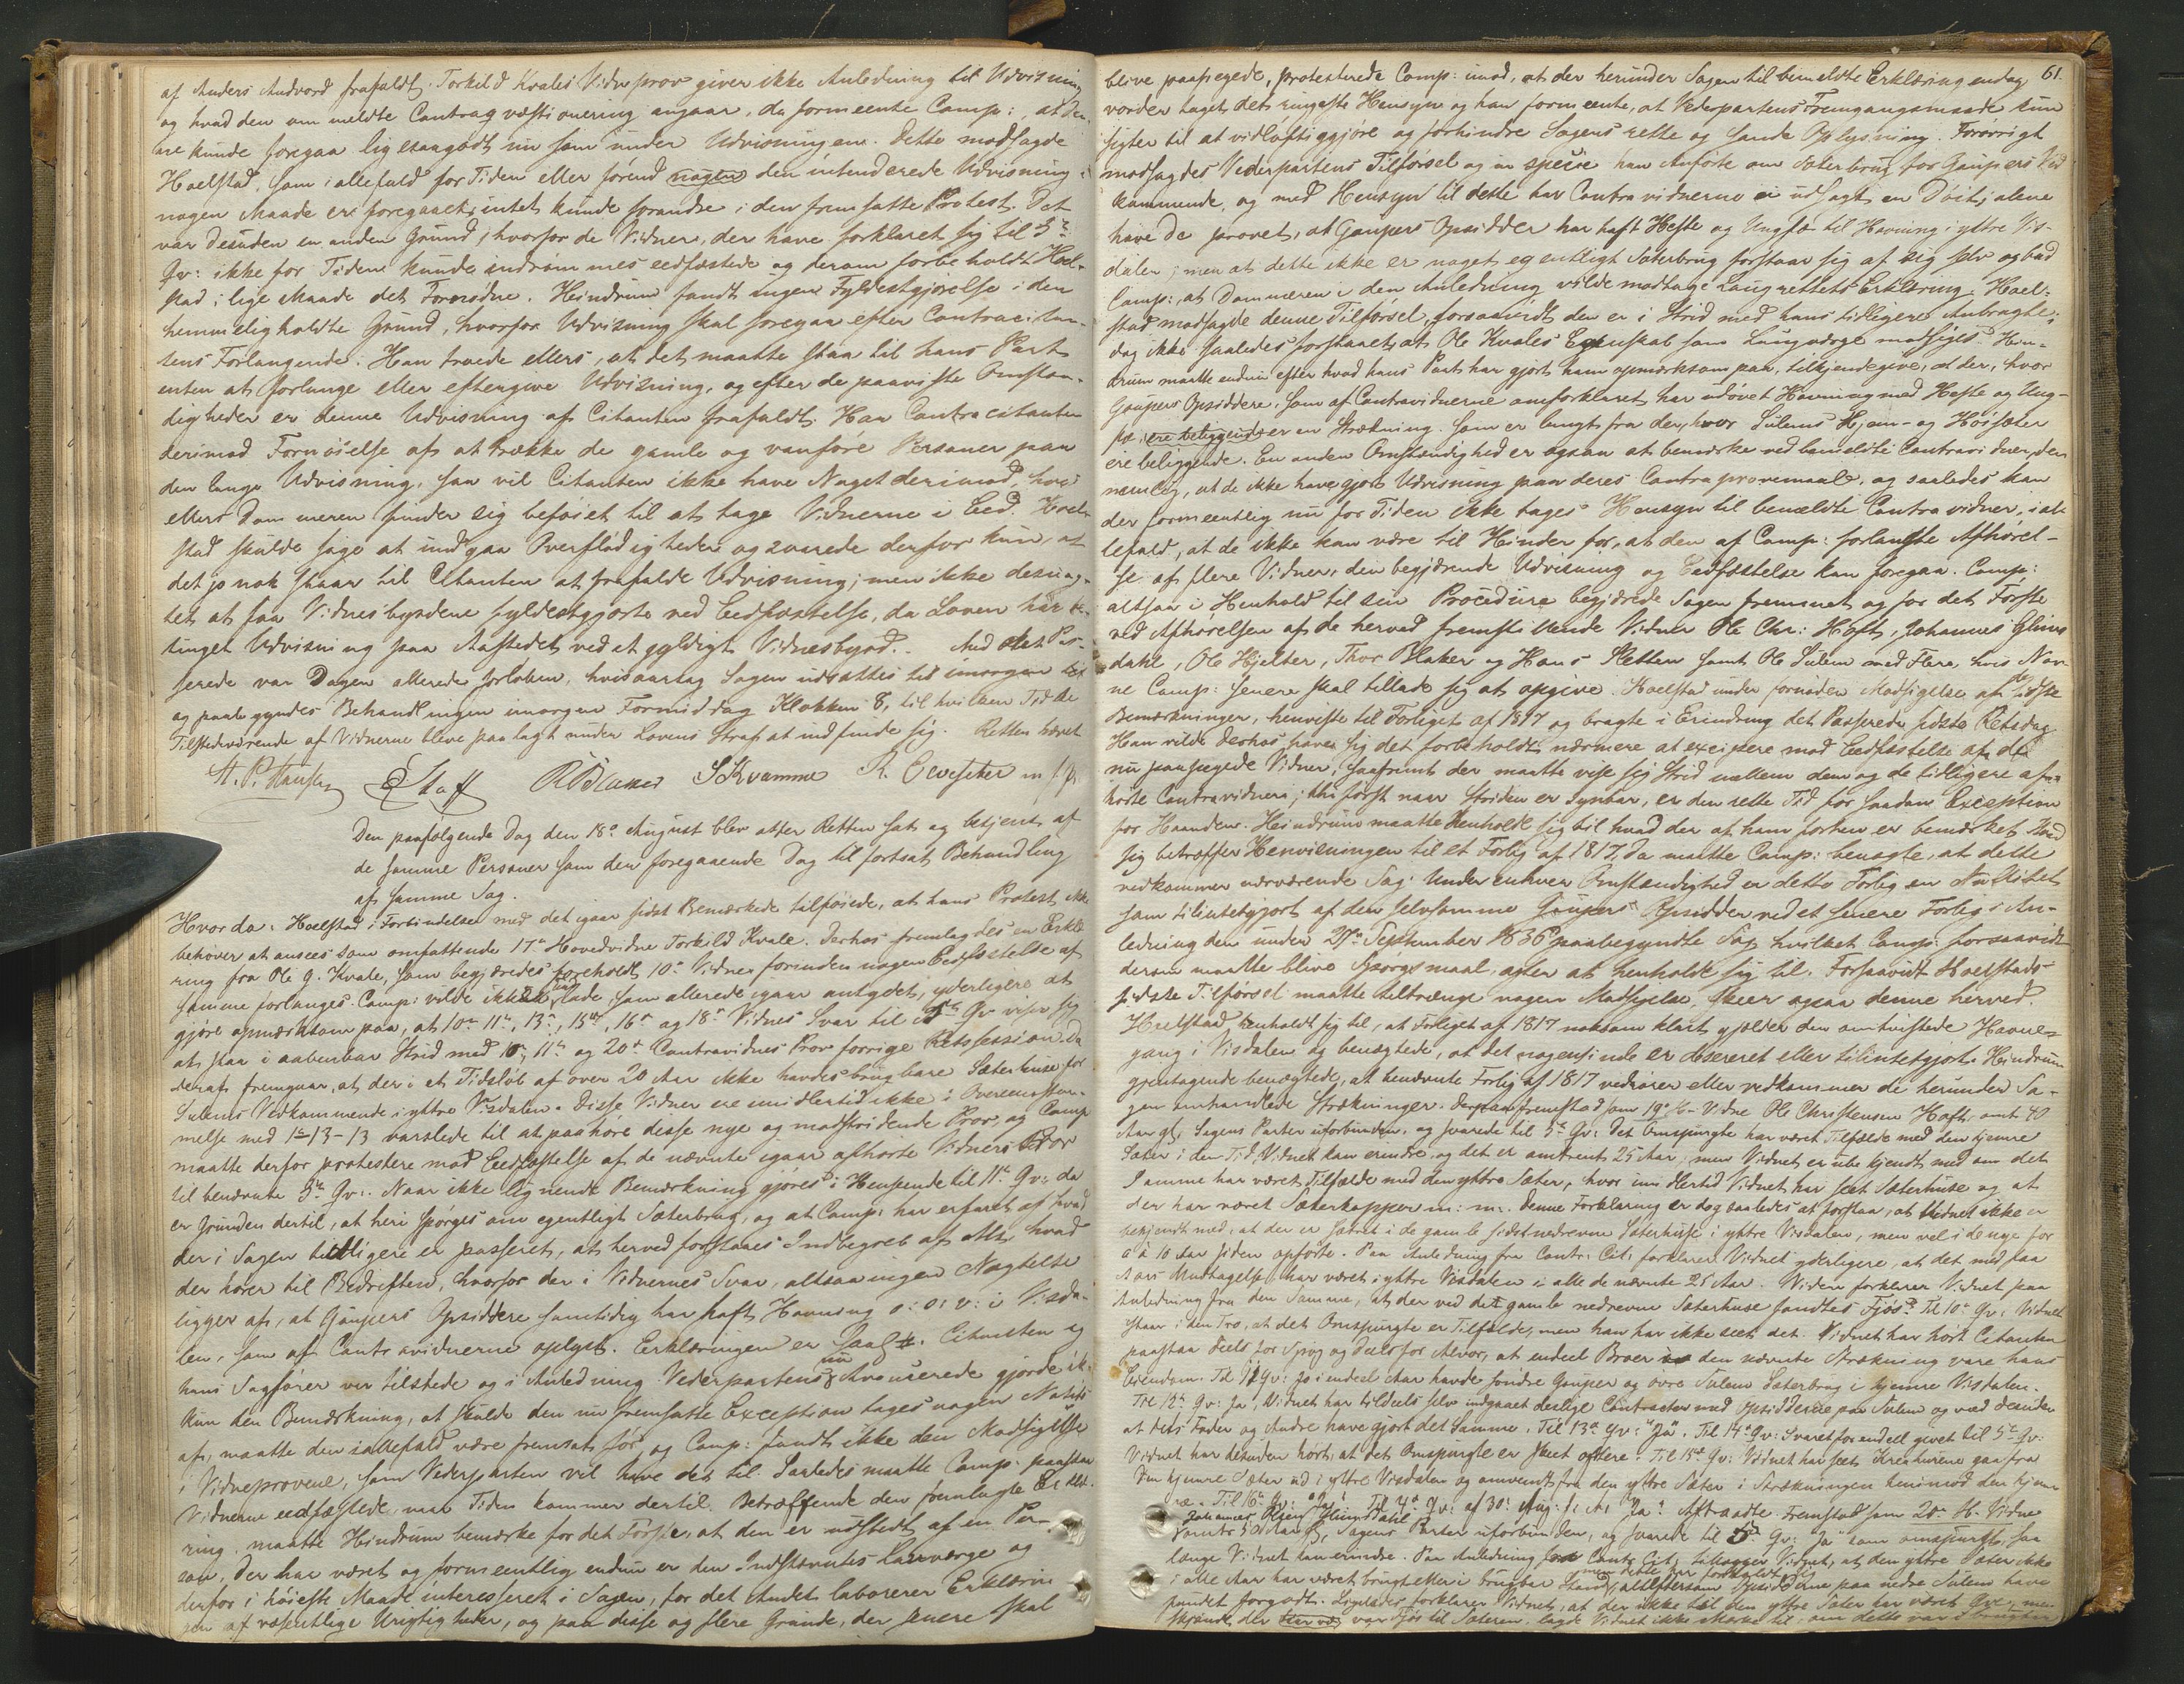 af Anders Andvord frafaldt. Torkild Kvales Vidneprov giver ikke Anledning til Udvisning
og hvad den ommeldte Contraqvæstionering angaar, da formeente Comp:, at den-
ne kunde foregaa ligesaagodt nu som under Udvisningen. Dette modsagde
Hoelstad, som i allefald for Tiden eller førend nogen den intenderede Udvisning i
nogen Maade er foregaaet, intet kunde forandre i den fremsatte Protest. Det
var desuden en anden Grund, hvorfor de Vidner, der have forklaret sig til 5te
Qv: ikke for Tiden kunde indrømmes eedfæstede og derom forbeholdt Hoel-
stad i lige Maade det Fornødne. Heindrum fandt ingen Fyldestgjørelse i den
hemmeligholdte Grund, hvorfor Udvisning skal foregaa efter Contracitan-
tens Forlangende. Han troede ellers, at det maatte staa til hans Part
enten at forlange eller eftergive Udvisning, og efter de paaviste Omstæn-
digheder er denne Udvisning af Citanten frafaldt. Har Contracitanten
derimod Fornøielse af at trække de gamle og vanføre Personer paa
den lange Udvisning, saa vil Citanten ikke have Noget derimod, hvis
ellers Dommeren finder sig beføiet til at tage Vidnerne i Eed. Hoel-
stad skulde søge at undgaa Overflødigheder og svarede derfor kun, at
det jo nok staar til Citanten at frafalde Udvisning; men ikke desuag-
tet at faa Vidnesbyrdene fyldestgjorte ved Eedfæstelse, da Loven har be-
tinget Udvisning paa Aastedet ved et gyldigt Vidnesbyrd. Med det Pas-
serede var Dagen allerede forløben, hvisaarsag Sagen udsattes til imorgen
og paabegyndes Behandlingen imorgen Formiddag Klokken 8, til hvilken Tid de
Tilstedeværende af Vidnerne bleve paalagt under Lovens Straf at indfinde sig. Retten hævet
A. P. Hansen R Blaker S Kvamme
Den paafølgende Dag den 18de August blev atter Retten sat og betjent af
de samme Personer som den foregaaende Dag til fortsat Behandling
af samme Sag.
Hvorda: Hoelstad i Forbindelse med det igaar sidst Bemærkede tilføiede, at hans Protest ikke
behøver at ansees som omfattende 17de Hovedvidne Torkild Kvale. Derhos fremlagdes en Erklæ-
ring fra Ole G. Kvale, som begjæredes foreholdt 10de Vidne forinden nogen Eedfæstelse af
samme forlanges. Comp: vilde ikke undlade, som allerede igaar antydet, yderligere at
gjøre opmærksom paa, at 10de 11te, 13de, 15de, 16de og 18de Vidnes Svar til 5te Qv viser sig
at staa i aabenbar Strid med 10de, 11te og 20de Contravidnes Prov forrige Retssession. Da
deraf fremgaar, at der i et Tidsløb af over 20 Aar ikke havdes brugbare Sæterhuse for
Sulems Vedkommende i yttre Visdalen. Disse Vidner ere imidlertid ikke i Overeensstem-
melse med 1-13-13 varslede til at paahøre disse nye og modstridende Prov, og Comp
maatte derfor protestere mod Eedfæstelse af de nævnte igaar afhørte Vidners Prov
til benævnte 5te Qv:. Naar ikke lignende Bemærkning gjøres i Henseende til 11te Qv: da
er Grunden dertil, at heri spørges om egentligt Sæterbrug, og at Comp: har erfaret af hvad
der i Sagen tidligere er passeret, at herved forstaaes Indbegreb af Alt, hvad
der hører til Bedriften, hvorfor der i Vidnernes Svar, altsaa ingen Nægtelse
ligger af, at Gaupers Opsiddere samtidig har haft Havning o: s: v: i Visda-
len, som af Contravidnerne oplyst. Erklæringen er saal #. Citanten og
hans Sagfører var tilstede og i Anledning Vederpartens nu Avancerede gjorde ik-
kun den Bemærkning, at skulde den nu fremsatte Exception tages nogen Notits
af, maatte den iallefald være fremsat før, og Comp: fandt ikke den Modsigelse
i Vidneprovene, som Vederparten vil have det til. Saaledes maatte Comp: paastaa
Vidnerne eedfæstede, naar Tiden kommer dertil. Betræffende den fremlagte Erklæ-
ring, maatte Heindrum bemærke for det Første, at den er udstedt af en Per-
son, der har været og formeentlig endnu er den Indstævntes Laugværge og
derfor i høieste Maade interesseret i Sagen, for det Andet laborerer Erklærin-
gen af væsentlige Urigtigheder, og paa disse og flere Grunde, der senere skal
61.
blive paapegede, protesterede Comp: imod, at der herunder Sagen til bemeldte Erklæring endog
vorder taget det ringeste Hensyn og han formeente, at Vederpartens Fremgangsmaade kun
sigter til at vidløftiggjøre og forhindre Sagens rette og sande Oplysning. Forøvrigt
modsagdes Vederpartens Tilførsel og in specie han Anførte om Sæterbrug for Gaupers Ved-
kommende, og med Hensyn til dette har Contravidnerne ei udsagt en Døit; alene
have de provet, at Gaupers Opsidder har haft Heste og Ungfæ til Havning i yttre Vis-
dalen; men at dette ikke er noget egentligt Sæterbrug forstaar sig af sig selv og bad
Comp:, at Dommeren i den Anledning vilde modtage Laugrettets Erklæring. Hoel-
stad modsagde denne Tilførsel, forsaavidt den er i Strid med hans tidligere Anbragte;
dog ikke saaledes forstaaet, at Ole Kvales Egenskab som Laugværge modsiges. Hein-
drum maatte endnu efter hvad hans Part har gjort ham opmærksom paa, tilkjendegive, at der, hvor
Gaupers Opsiddere, som af Contravidnerne omforklaret har udøvet Havning med Heste og Ung-
fæ, ere beliggende er en Strækning, som er langt fra der, hvor Sulems Hjem- og Høisæter
ere beliggende. En anden Omstændighed er ogsaa at bemærke ved bemeldte Contravidner, den
nemlig, at de ikke have gjort Udvisning paa deres Contraprovemaal, og saaledes kan
der formeentlig nu for Tiden ikke tages Hensyn til benævnte Contravidner, i al-
lefald, at de ikke kan være til Hinder for, at den af Comp: forlangte Afhørel-
se af flere Vidner, den begjærende Udvisning og Eedfæstelse kan foregaa. Comp:
altsaa i Henhold til sin Procedure begjærede Sagen fremmet og for det Første
ved Afhørelsen af de herved fremstillende Vidner Ole Chr: Hoft, Johannes Glims-
dahl, Ole Hjelter, Thor Blaker og Hans Sletten samt Ole Sulem med Flere, hvis Nav-
ne Comp: senere skal tillade sig at opgive. Hoelstad under fornøden Modsigelse af de sidste
Bemærkninger, henviste til Forliget af 1817 og bragte i Erindring det Passerede sidste Retsdag
Han vilde derhos have sig det forbeholdt nærmere at excipere mod Eedfæstelse af de
nu paapegede Vidner, saafremt der maatte vise sig Strid mellem dem og de tidligere af-
hørte Contravidner; thi først naar Striden er synbar, er den rette Tid for saadan Exception
for Haanden. Heindrum maatte henholde sig til hvad der af ham forhen er bemærket. Hvad
sig betræffer Henvisningen til et Forlig af 1817, da maatte Comp: benægte, at dette
vedkommer nærværende Sag. Under enhver Omstændighed er dette Forlig en Nullitet
som tilintetgjort af den selvsamme Gaupers Opsidder ved et senere Forlig i An-
ledning den under 27de September 1836 paabegyndte Sag hvilket Comp: forsaavidt
derom maatte blive Spørgsmaal, agter at henholde sig til. Forsaavidt Hoelstads
sidste Tilførsel maatte tiltrænge nogen Modsigelse, skeer ogsaa denne herved.
Hoelstad henholdt sig til, at Forliget af 1817 noksom klart gjælder den omtvistede Havne-
gang i Visdalen og benægtede, at det nogensinde er desereret eller tilintetgjort. Heindrum
gjentagende benægtede, at benævnte Forlig af 1817 vedrører eller vedkommer de herunder Sa-
gen omhandlede Strækninger. Derpaa fremstod som 19de H-Vidne Ole Christensen Hoft, omt 40
Aar gl: Sagens Parter uforbunden, og svarede til 5te Qv: Det Omspurgte har været Tilfælde med den hjemre
Sæter i den Tid Vidnet kan erindre, og det er omtrent 25 Aar; men Vidnet er ube kjendt med om det
Samme har været Tilfælde med den yttre Sæter, hvor imidlertid Vidnet har seet Sæterhuse og at
der har været Sæterkopper m: m:. Denne Forklaring er dog saaledes at forstaa, at Vidnet ikke er
bekjendt med, at der er Sætret i de gamle sidst nedrevne Sæterhuse i yttre Visdalen, men vel i de nye for
6 à 10 Aar siden opførte. Paa Anledning fra Contr: Cit: forklarer Vidnet yderligere, at det med faa
Aars Undtagelse har været i yttre Visdalen i alle de nævnte 25 Aar. Videre forklarer Vidnet paa
Anledning fra den Samme, at der ved det gamle nedrevne Sæterhuse fandtes Fjøs. Til 10de Qv: Vidnet
staar i den Tro, at det Omspurgte er Tilfælde, men han har ikke seet det. Vidnet har hørt Citanten
paastaa deels for Spøg og deels for Alvor, at endeel Broer i den nævnte Strækning vare hans
Eiendom. Til 11te Qv: Jo i endeel Aar havde søndre Gauper og øvre Sulem Sæterbrug i hjemre Visdalen.
Til 12te Qv: Ja, Vidnet har tildeels selv indgaaet deslige Contracter med Opsidderne paa Sulem og veed desuden
at dets Fader og Andre have gjort det Samme. Til 13de Qv: "Ja". Til 14de Qv: Svaret forendeel givet til 5te Qv:
Vidnet har desuden hørt, at det Omspurgte er skeet oftere. Til 15de Qv: Vidnet har seet Kreaturene gaa fra
den hjemre Sæter ud i yttre Visdalen og omvendt fra den yttre Sæter i Strækningen henimod den hjem-
re. Til 16de Qv: "Ja". Til 4de Qv: af 30: Aug: f: A: "Ja". Aftraadte. Fremstod som 20de H-Vidne
Johannes Glimsdahl
omtr: Aar gl, Sagens Parter uforbunden, og svarede til 5te Qv: Ja som omspurgt, saa
længe Vidnet kan erindre. Paa Anledning fra Contr: Cit: tillægger Vidnet, at den yttre Sæter ikke
i alle Aar har været brugt eller i brugbar Stand, alt eftersom Opsidderne paa nedre Sulem have
fundet forgodt. Ligeledes forklarer Vidnet, at der ikke til den yttre Sæter har været
der var Fjøs til Sæteren, lagde Vidnet ikke Mærke til, om dette var i